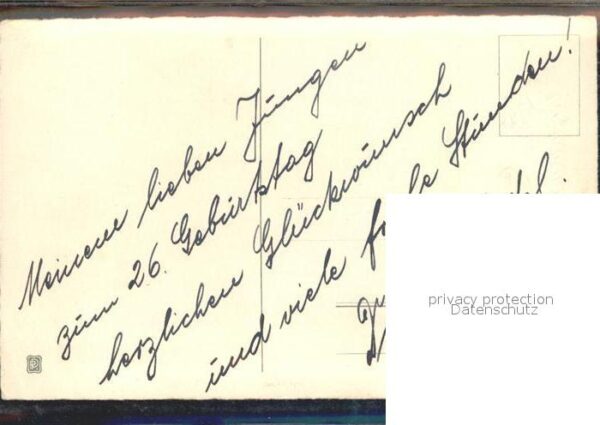 Meinem lieben Jungen
zum 26. Geburtstag
herzlichen Glückwunsch
und viele frohe Stunden!
privacy protection
Datenschutz